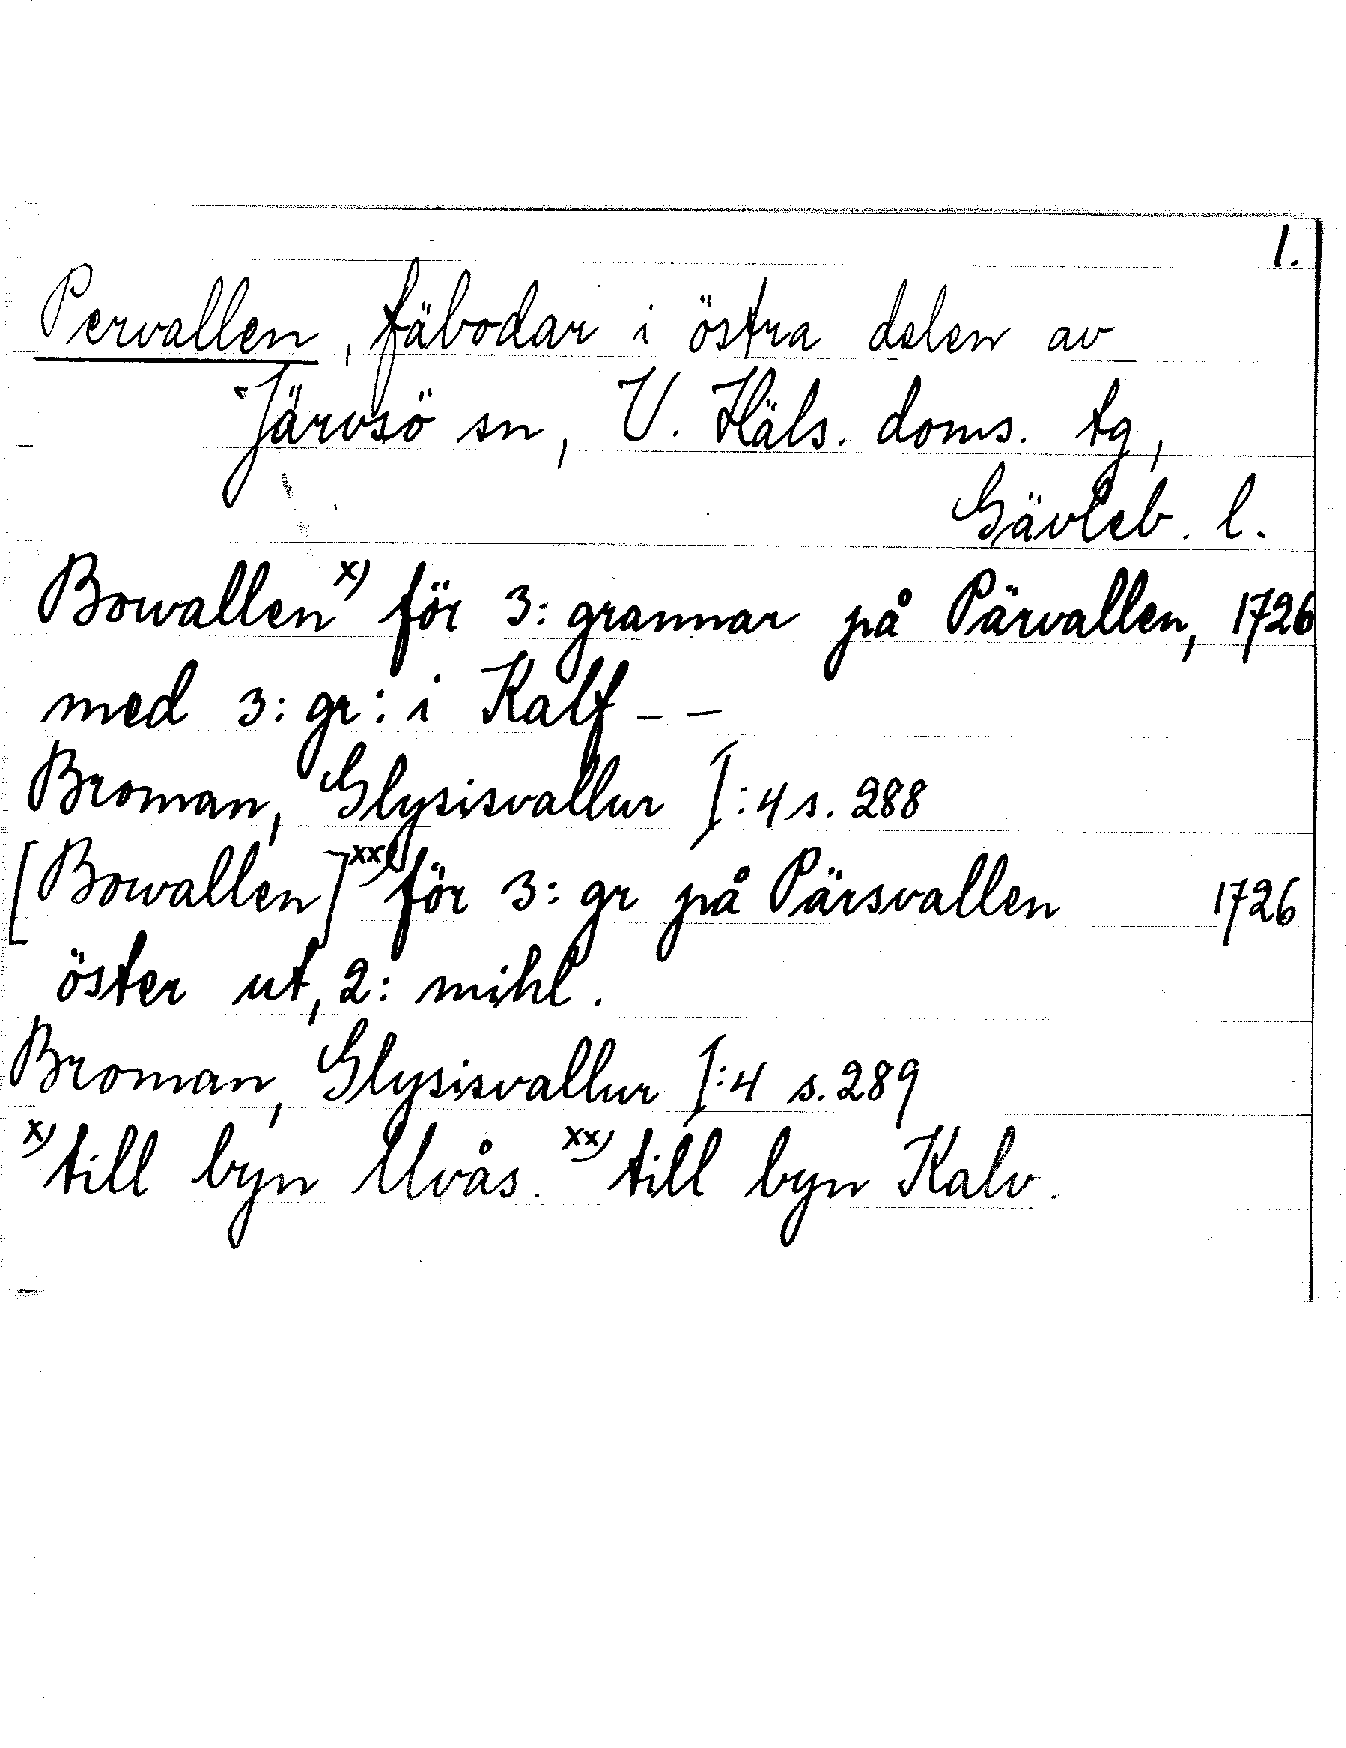 1.
Pervallen, fäbodar i östra delen av
Järvsö sn, V. Häls. doms. tg,
Gävleb. l.
Bowallen x) för 3: grannar på Pärvallen, 1726
med 3: gr: i Kalf - -
Broman, Glysisvallur I:4 s. 288
[Bowallen] xx) för 3: gr på Pärsvallen 1726
öster ut, 2: mihl.
Broman, Glysisvallur I:4 s. 289
x) till byn Ulvås. xx) till byn Kalv.